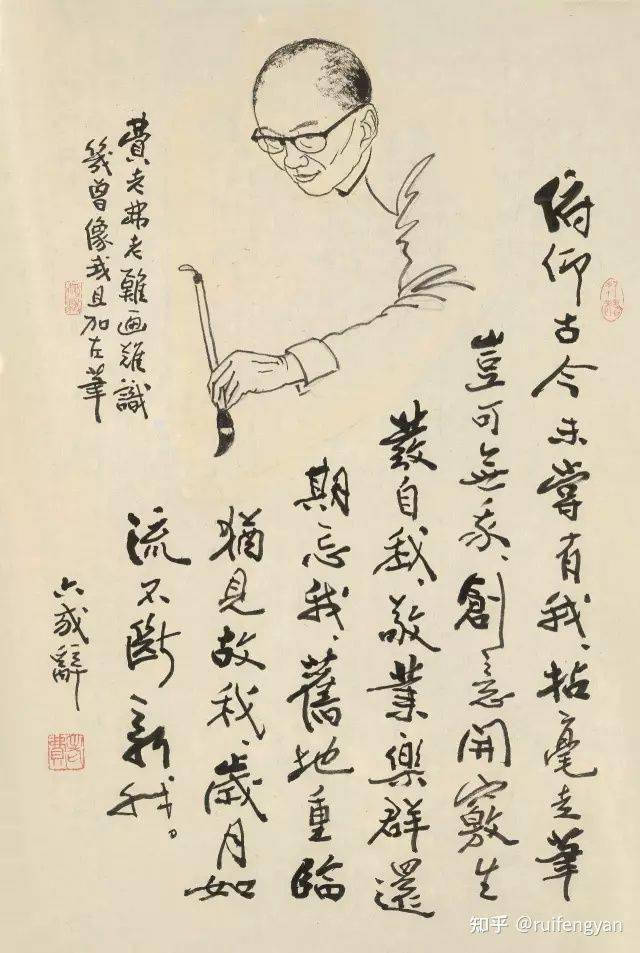 俯仰古今未嘗有我、拈毫走筆
豈可無我、創意開竅生
發自我、敬業樂群還
期忘我、舊地重臨
猶見故我、歲月如
流不斷新我。
六我辭
費老弗老難画難識
幾曾像我且加左筆
知乎 @ruifengyan